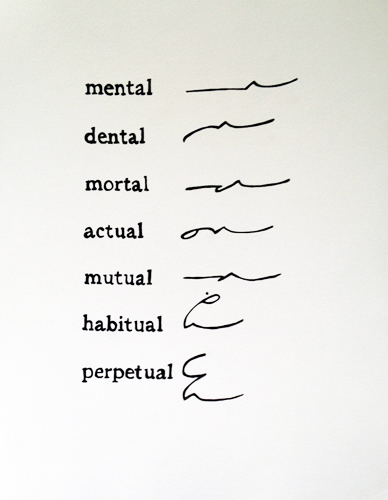 mental
dental
mortal
actual
mutual
habitual
perpetual